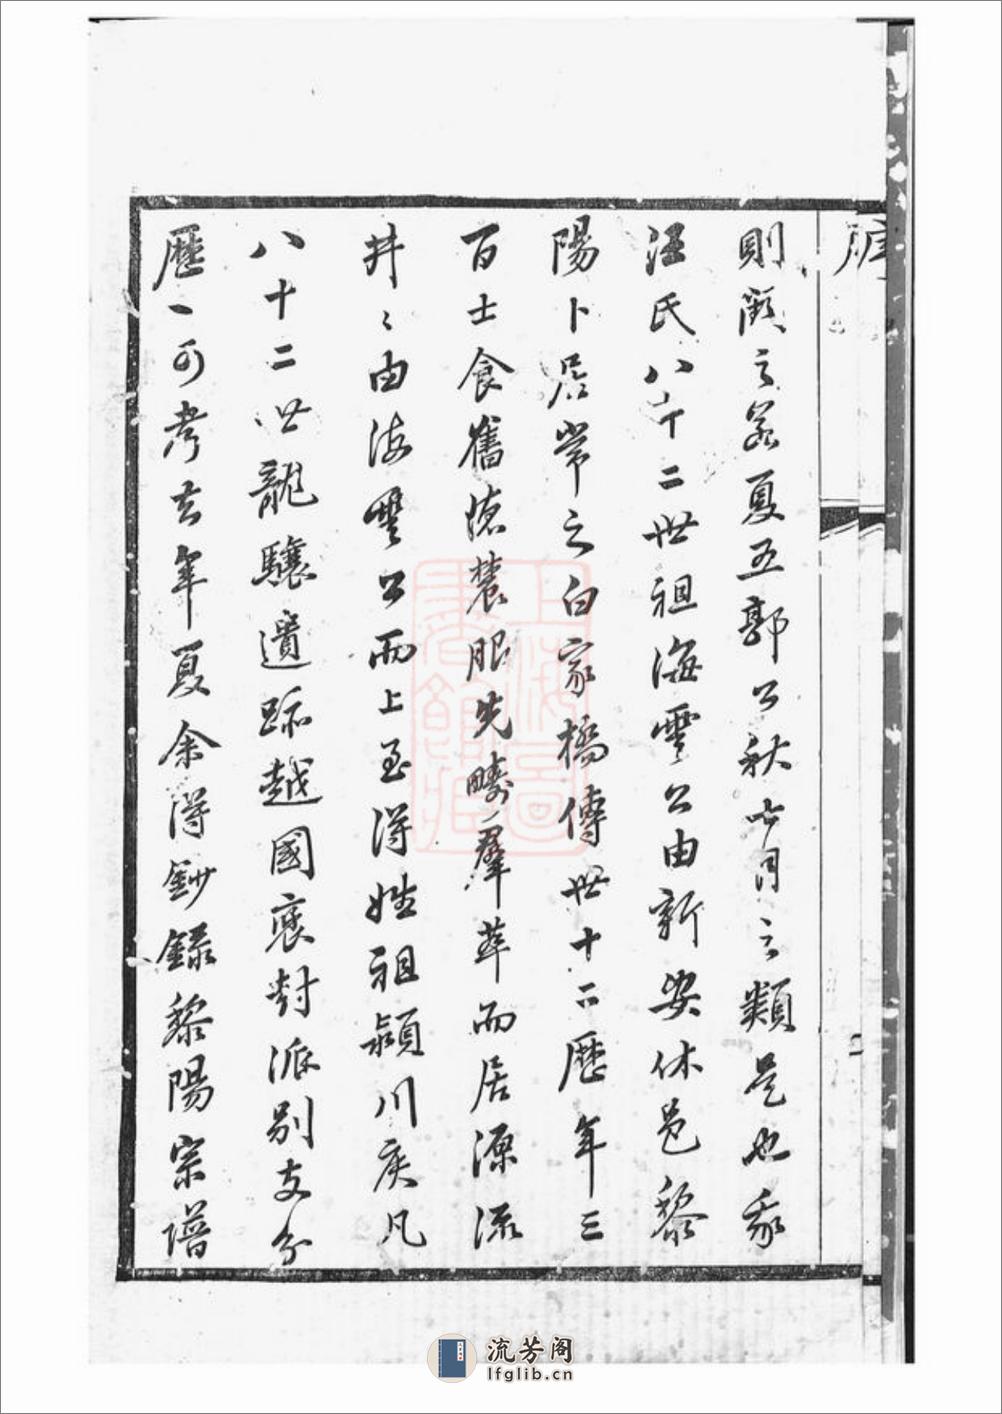 序
則闕之若夏五郭公秋七月之類是也我
汪氏八十二世祖海雲公由新安休邑黎
陽卜居常之白家橋傳世十二歷年三
百士食舊德農服先疇羣萃而居源流
井〻由海雲公而上至得姓祖潁川侯凡
八十二世龍驤遺跡越國褒封派別支分
歷一可考去年夏余得鈔錄黎陽宗譜
二
上海圖書館藏
流芳阁
lfglib.cn